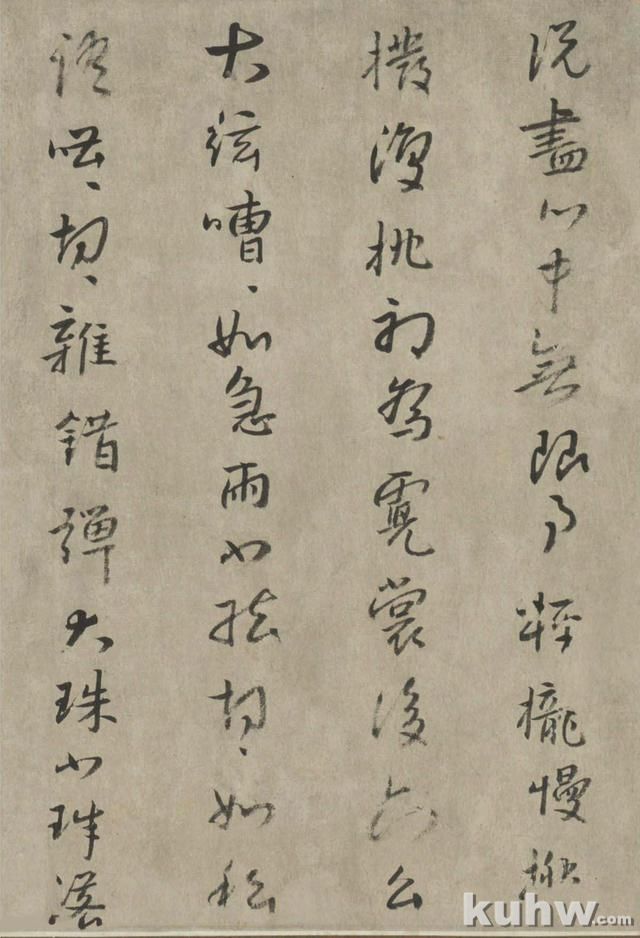 說盡心中無限事輕攏慢撚
撥復挑初為霓裳後六么
大絃嘈、如急雨小絃切、如私
語嘈、切、雜錯彈大珠小珠落
kuhw.com